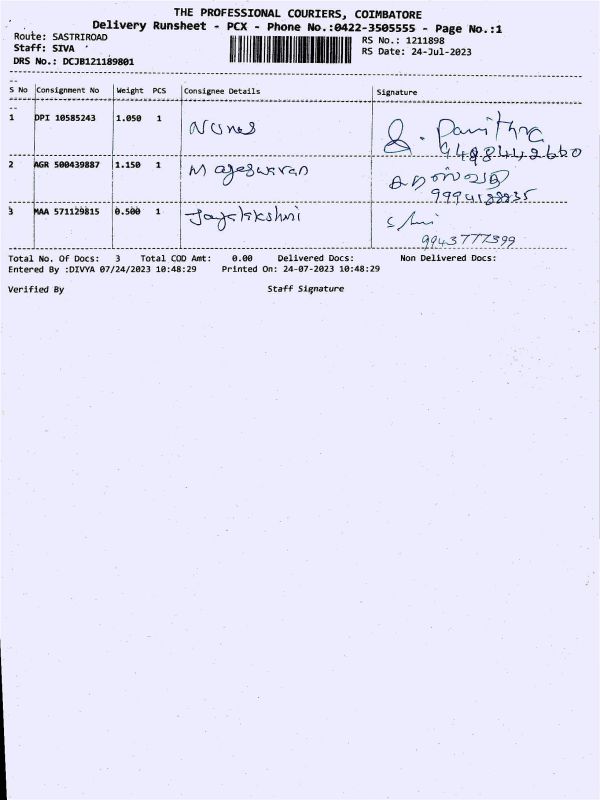 THE PROFESSIONAL COURIERS, COIMBATORE
Delivery Runsheet - PCX - Phone No.:0422-3505555 - Page No.:1
Route: SASTRIROAD RS No.: 1211898
Staff: SIVA RS Date: 24-Jul-2023
DRS No.: DCJB121189801
S No Consignment No Weight PCS Consignee Details Signature
1 DPI 10585243 1.050 1 S. Pavithra
9488442660
2 AGR 500439887 1.150 1 Mageswaran சரஸ்வதி
3 MAA 571129815 0.500 1 Jayalakshmi
9943777399
Total No. Of Docs: 3 Total COD Amt: 0.00 Delivered Docs: Non Delivered Docs:
Entered By :DIVYA 07/24/2023 10:48:29 Printed On: 24-07-2023 10:48:29
Verified By Staff Signature